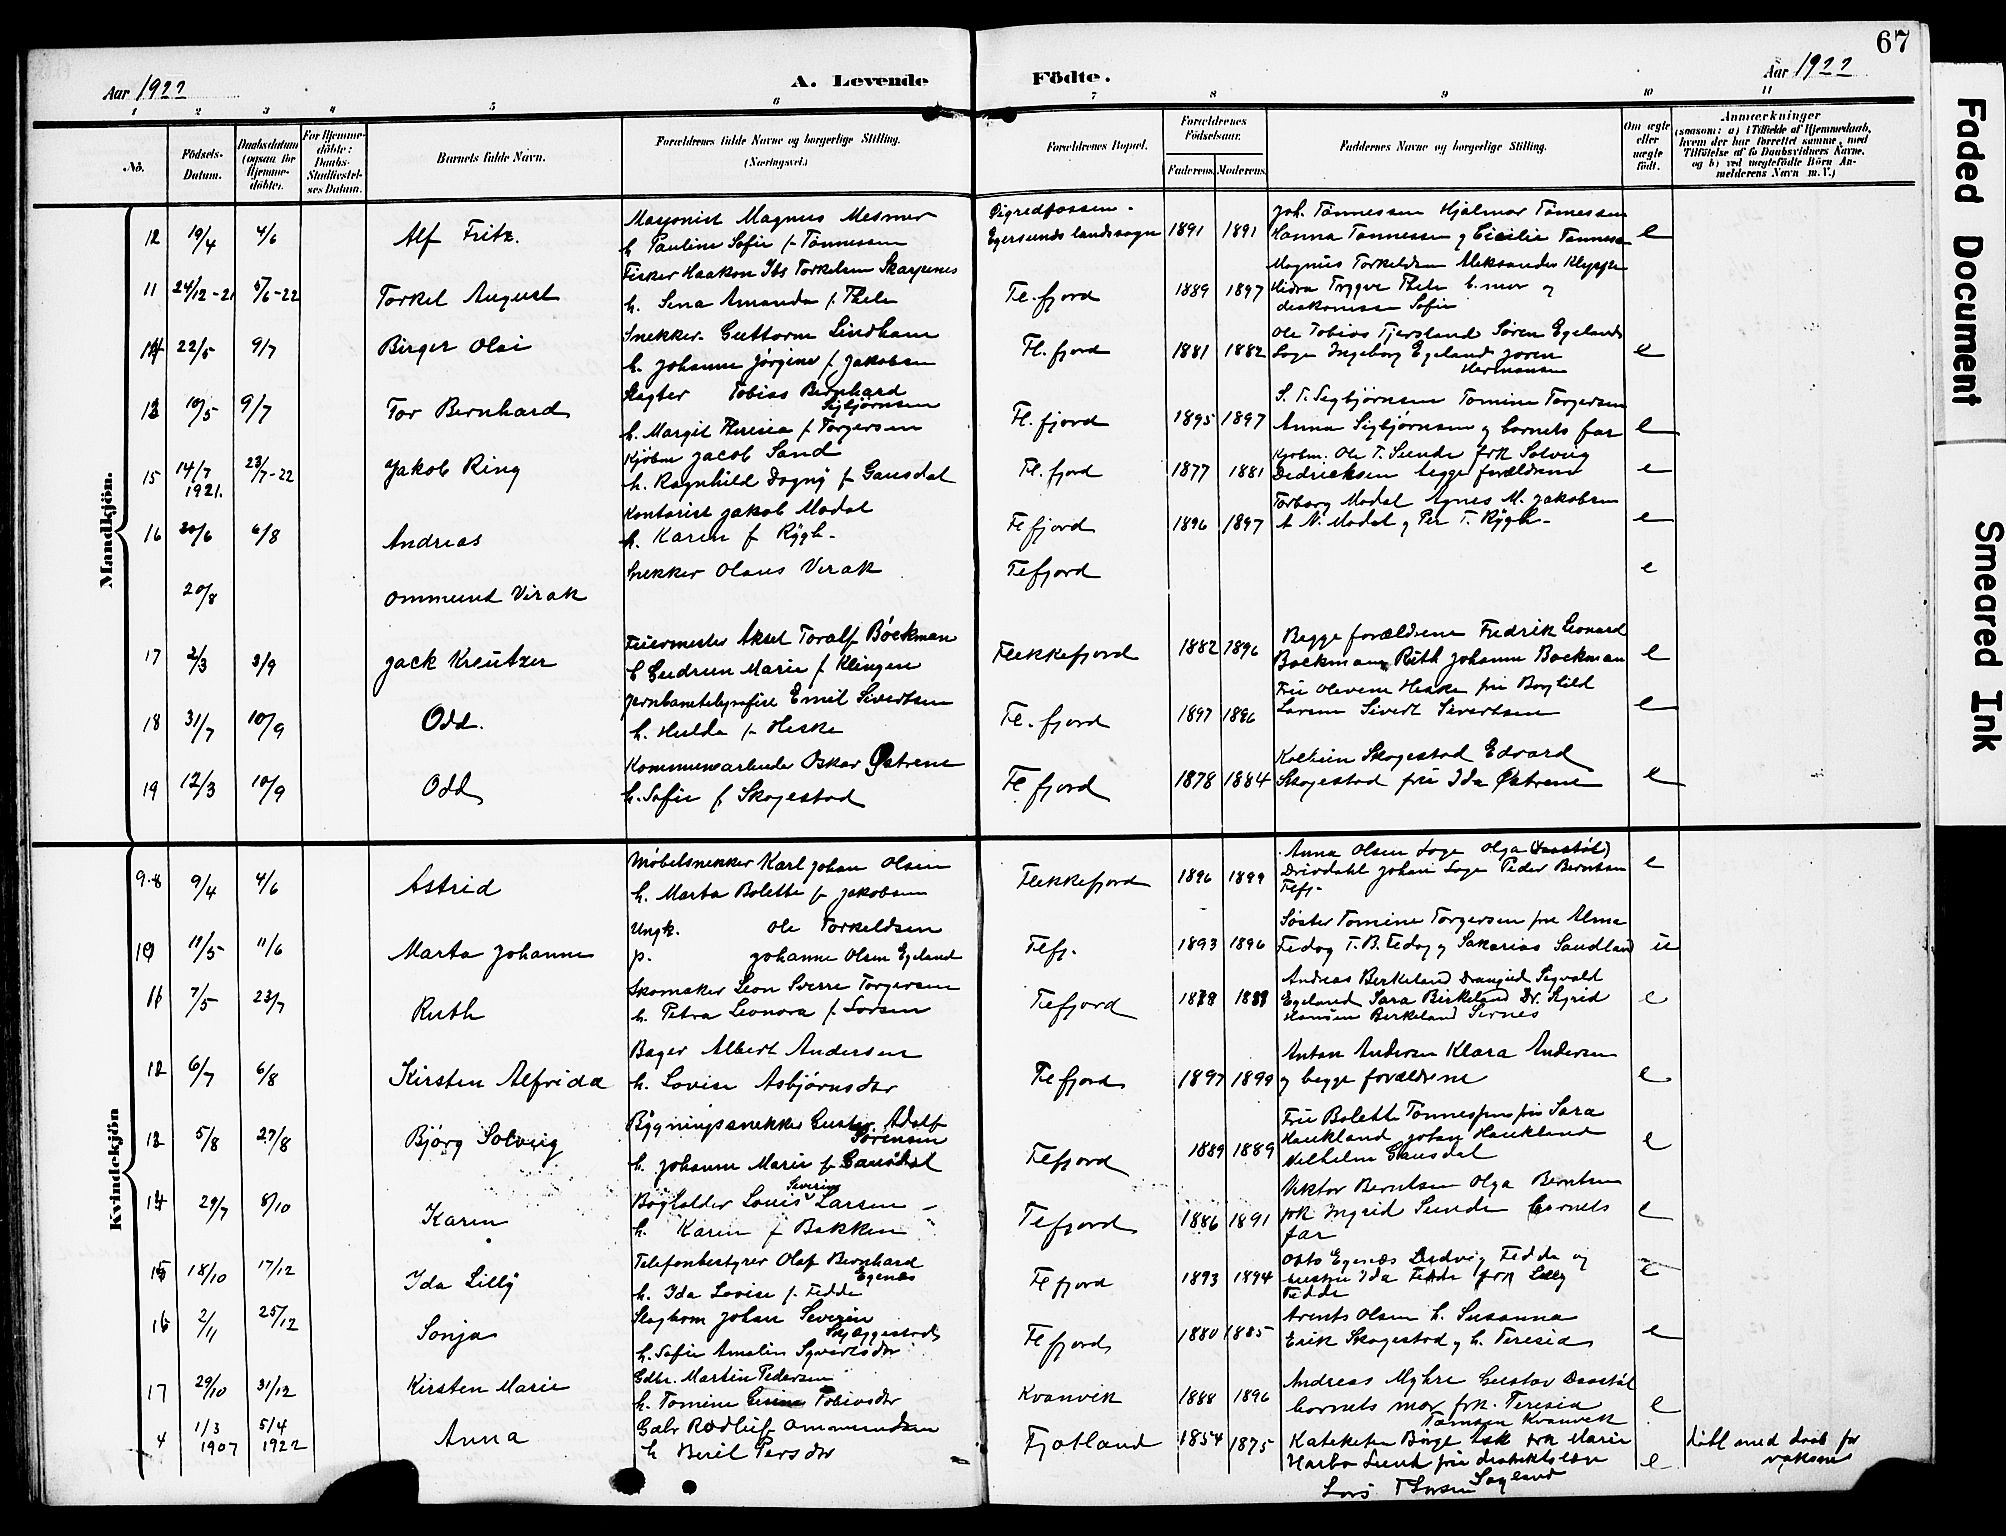 67
Aar 1922
A. Levende
Födte.
Aar 1922
1 2 3 4 5 6 7 8 9 10 11
No.
Födsels-Datum.
Daabsdatum (ogsaa for Hjemme-döbte).
For Hjemme-döbte: Daabs-Stadfæstel-ses Datum.
Barnets fulde Navn.
Forældrenes fulde Navne og borgerlige Stilling. (Næringsvei.)
Forældrenes Bopæl.
Forældrenes Födselsaar.
Faderens. Moderens.
Faddernes Navne og borgerlige Stilling.
Om ægte eller uægte født.
Anmærkninger (saasom: a) i Tilfælde af Hjemmedaab, hvem der har forrettet samme, med Tilföielse af to Daabsvidners Navne, og b) ved uægtefödte Börn Anmelderens Navn m. V.)
Mandkjön.
12 19/4 4/6 Alf Fritz. Magnus Mesmer
h. Pauline Sofie f. Tönnessen Egersunds landssogn 1891 1891 Joh. Tönnessen Hjalmar Tönnessen
Hanna Tönnessen og Cicilie Tönnessen e
11 24/12-21 5/6-22 Torkel August Fisker Haakon Ths Torkelsen Skarpenes
h. Sena Amanda f. Thele Fl. fjord 1889 1897 Magnus Torkeldsen Aleksander
Hidra Trygve Thele b. mor og
diakonisse Sofie
14 22/5 9/7 Birger Olai Snekker Guttorm Lindham
h. Johanne Jörgine f. Jakobsen Fl. fjord 1881 1882 Ole Tobias Tjersland Sören Egeland
Loge Ingeborg Egeland Joren
Hermansen e
13 10/5 9/7 Tor Bernhard Slagter Tobias Bernhard
Sigbjörnsen
h. Margit Theresia f. Torgersen Fl. fjord 1895 1897 S. T. Sigbjörnsen Tomine Torgersen
Anna Sigbjørnsen og barnets far e
15 14/7 1921. 23/7-22 Jakob Ring Kjöbm Jacob Sand
h. Ragnhild Dagny f Gausdal Fl. fjord 1877 1881 Kjøbm. Ole T. Sunde frk Solveig
Dedricksen begge forældrene e
16 30/6 6/8 Andreas Kontorist Jakob Modal
h. Karen f Rygh. Flefjord 1896 1897 Torborg Modal Agnes M. Jakobsen
A N. Modal og Per T. Rygh. e
20/8 Ommund Virak Snekker Olaus Virak Flefjord e
17 2/3 3/9 Jack Kreutzer Fiiermester Aksel Toralf Böckman
h Gudrun Marie f Klingen Flekkefjord 1882 1896 Begge forældrene Fredrik Leonard
Bockmann Ruth Johanne Bockman e
18 31/7 10/9 Odd. Jernbanetelegrafist Emil Sivertsen
h. Hulda f. Heske Fl. fjord 1897 1896 Fru Olevine Heske fru Bergliot
Larsen Sivert Sivertsen e
19 12/3 10/9 Odd Kommunearbeider Oskar Østrem
h. Sofie f Skogestad Fl fjord 1878 1884 Skogestad Edvard
Skogestad fru Ida Østrem e
Kvindekjön
9.8 9/4 4/6 Astrid Möbelsnekker Karl Johan Olsen
h. Marta Bolette f Jakobsen Flekkefjord 1896 1899 Anna Olsen Loge Olga (Daastöl)
Drivdahl Johan Loge Peder Berntsen
Flefj. e
10 11/5 11/6 Marta Johanne Ungk. Ole Torkeldsen
p. Johanne Olsen Egeland Flefj. 1893 1896 Söster Tomine Torgersen frue Alma
Fedog T. B. Fedog og Sakarias Sandland u
11 7/5 23/7 Ruth Skomaker Leon Sverre Torgersen
h. Petra Leonora f. Larsen Flefjord Andreas Berkeland Drangeid Sigvald
Egeland Sara Birkeland Dr. Sigrid
Hansen Birkeland Sirnes e
12 6/7 6/8 Kirsten Alfrida Bager Albert Andersen
h. Lovise Asbjørnsdtr Flefjord 1897 1899 Anton Andersen Klara Andersen
og begge forældrene e
13 5/8 27/8 Björg Solveig Bygningssnekker Gustav Adolf
Sørensen
h. Johanne Marie f Gausdal Flefjord 1889 1889 Fru Bolette Tönnessen fru Sara
Haukland Johan Haukland
Vilhelm Gausdal e
14 29/7 8/10 Karen Bogholder Louis Severin Larsen
h. Karen f Bakken Flefjord 1886 1891 Viktor Berntsen Olga Berntsen
frk Ingrid Sunde barnets
far e
15 18/10 17/12 Ida Lilly Telefonbestyrer Olaf Bernhard
Egenæs
h. Ida Lovise f. Fedde Fl fjord 1893 1894 Otto Egenæs Ludvig Fedde og
hustru Ida Fedde frk Lilly
Fedde e
16 2/11 25/12 Sonja Johan Severin
h. Sofie Amalie Syvertsdtr Fl fjord 1880 1885 Arents Olsen h. Susanna
Erik Skogestad og h. Teresia e
17 29/10 31/12 Kirsten Marie Gdbr. Martin Pedersen
h. Tomine Tobiasdtr Kvanvik 1888 1896 Andreas Myhre Gustav Daastöl
barnets mor frk. Teresia
Tomsen Kvanvik e
4 1/3 1907 5/4 1922 Anna Gabr Rodluf Ommundsen
h Beril Persdtr Fjotland 1854 1875 Kateketen Börge frk Marie
Harbo Lund fru distriktslæge
Lars T Larsen e döbt med daab for
voksne
Faded Document
Smeared Ink